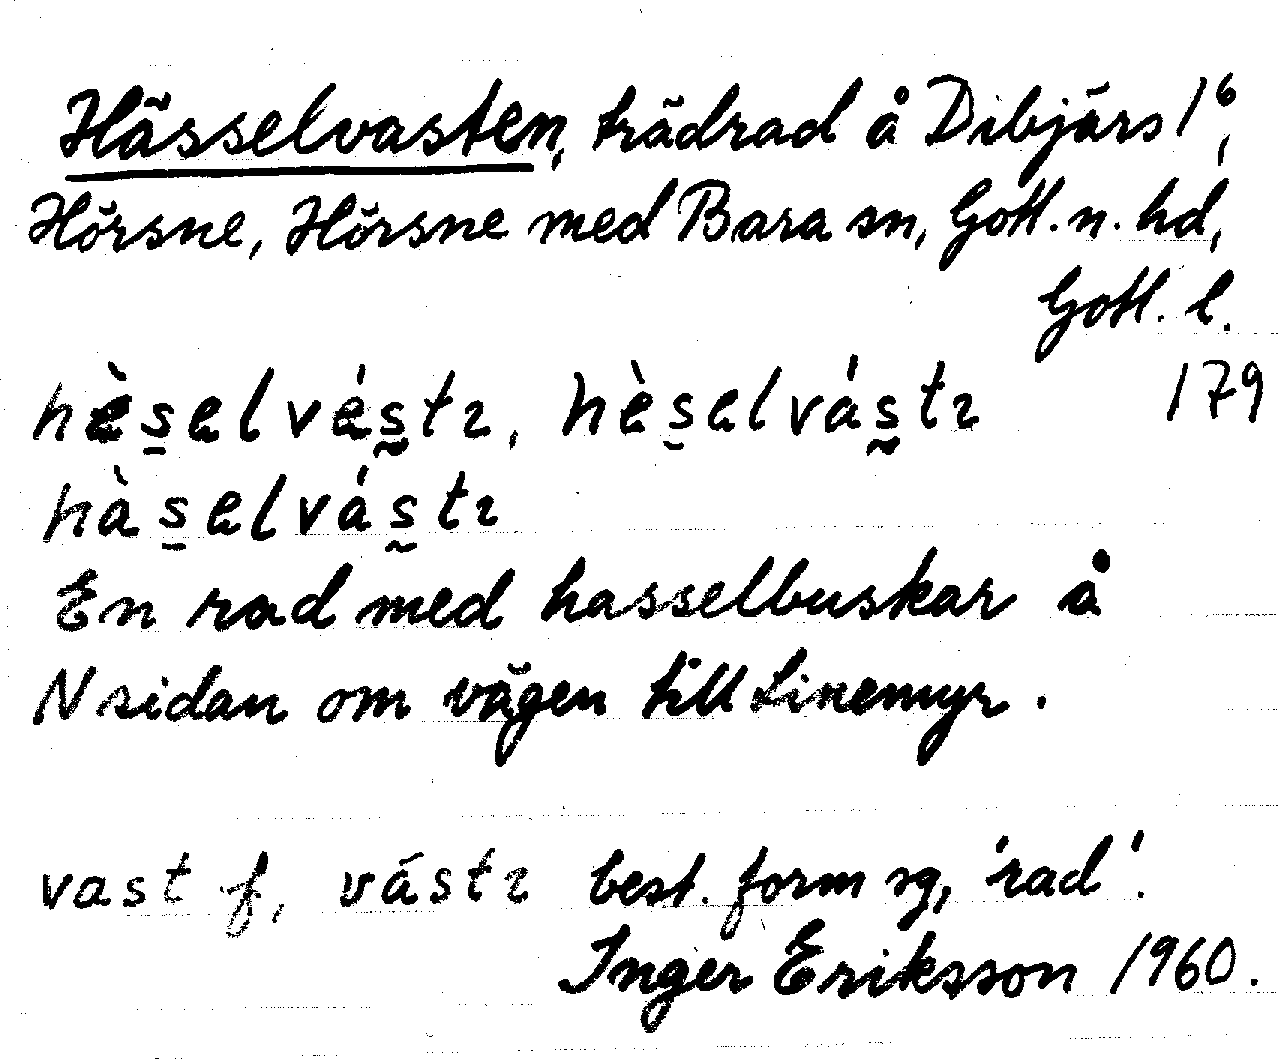 Hässelvasten, trädrad å Dibjärs 1⁶,
Hörsne, Hörsne med Bara sn, Gotl. n. hd,
Gotl. l.
hès̠elvás̰tɿ, hès̠elvás̰tɿ 179
hàs̠elvás̰tɿ
En rad med hasselbuskar å
N sidan om vägen till Linemyr.
vast f, vástɿ best. form sg, 'rad'.
Inger Eriksson 1960.